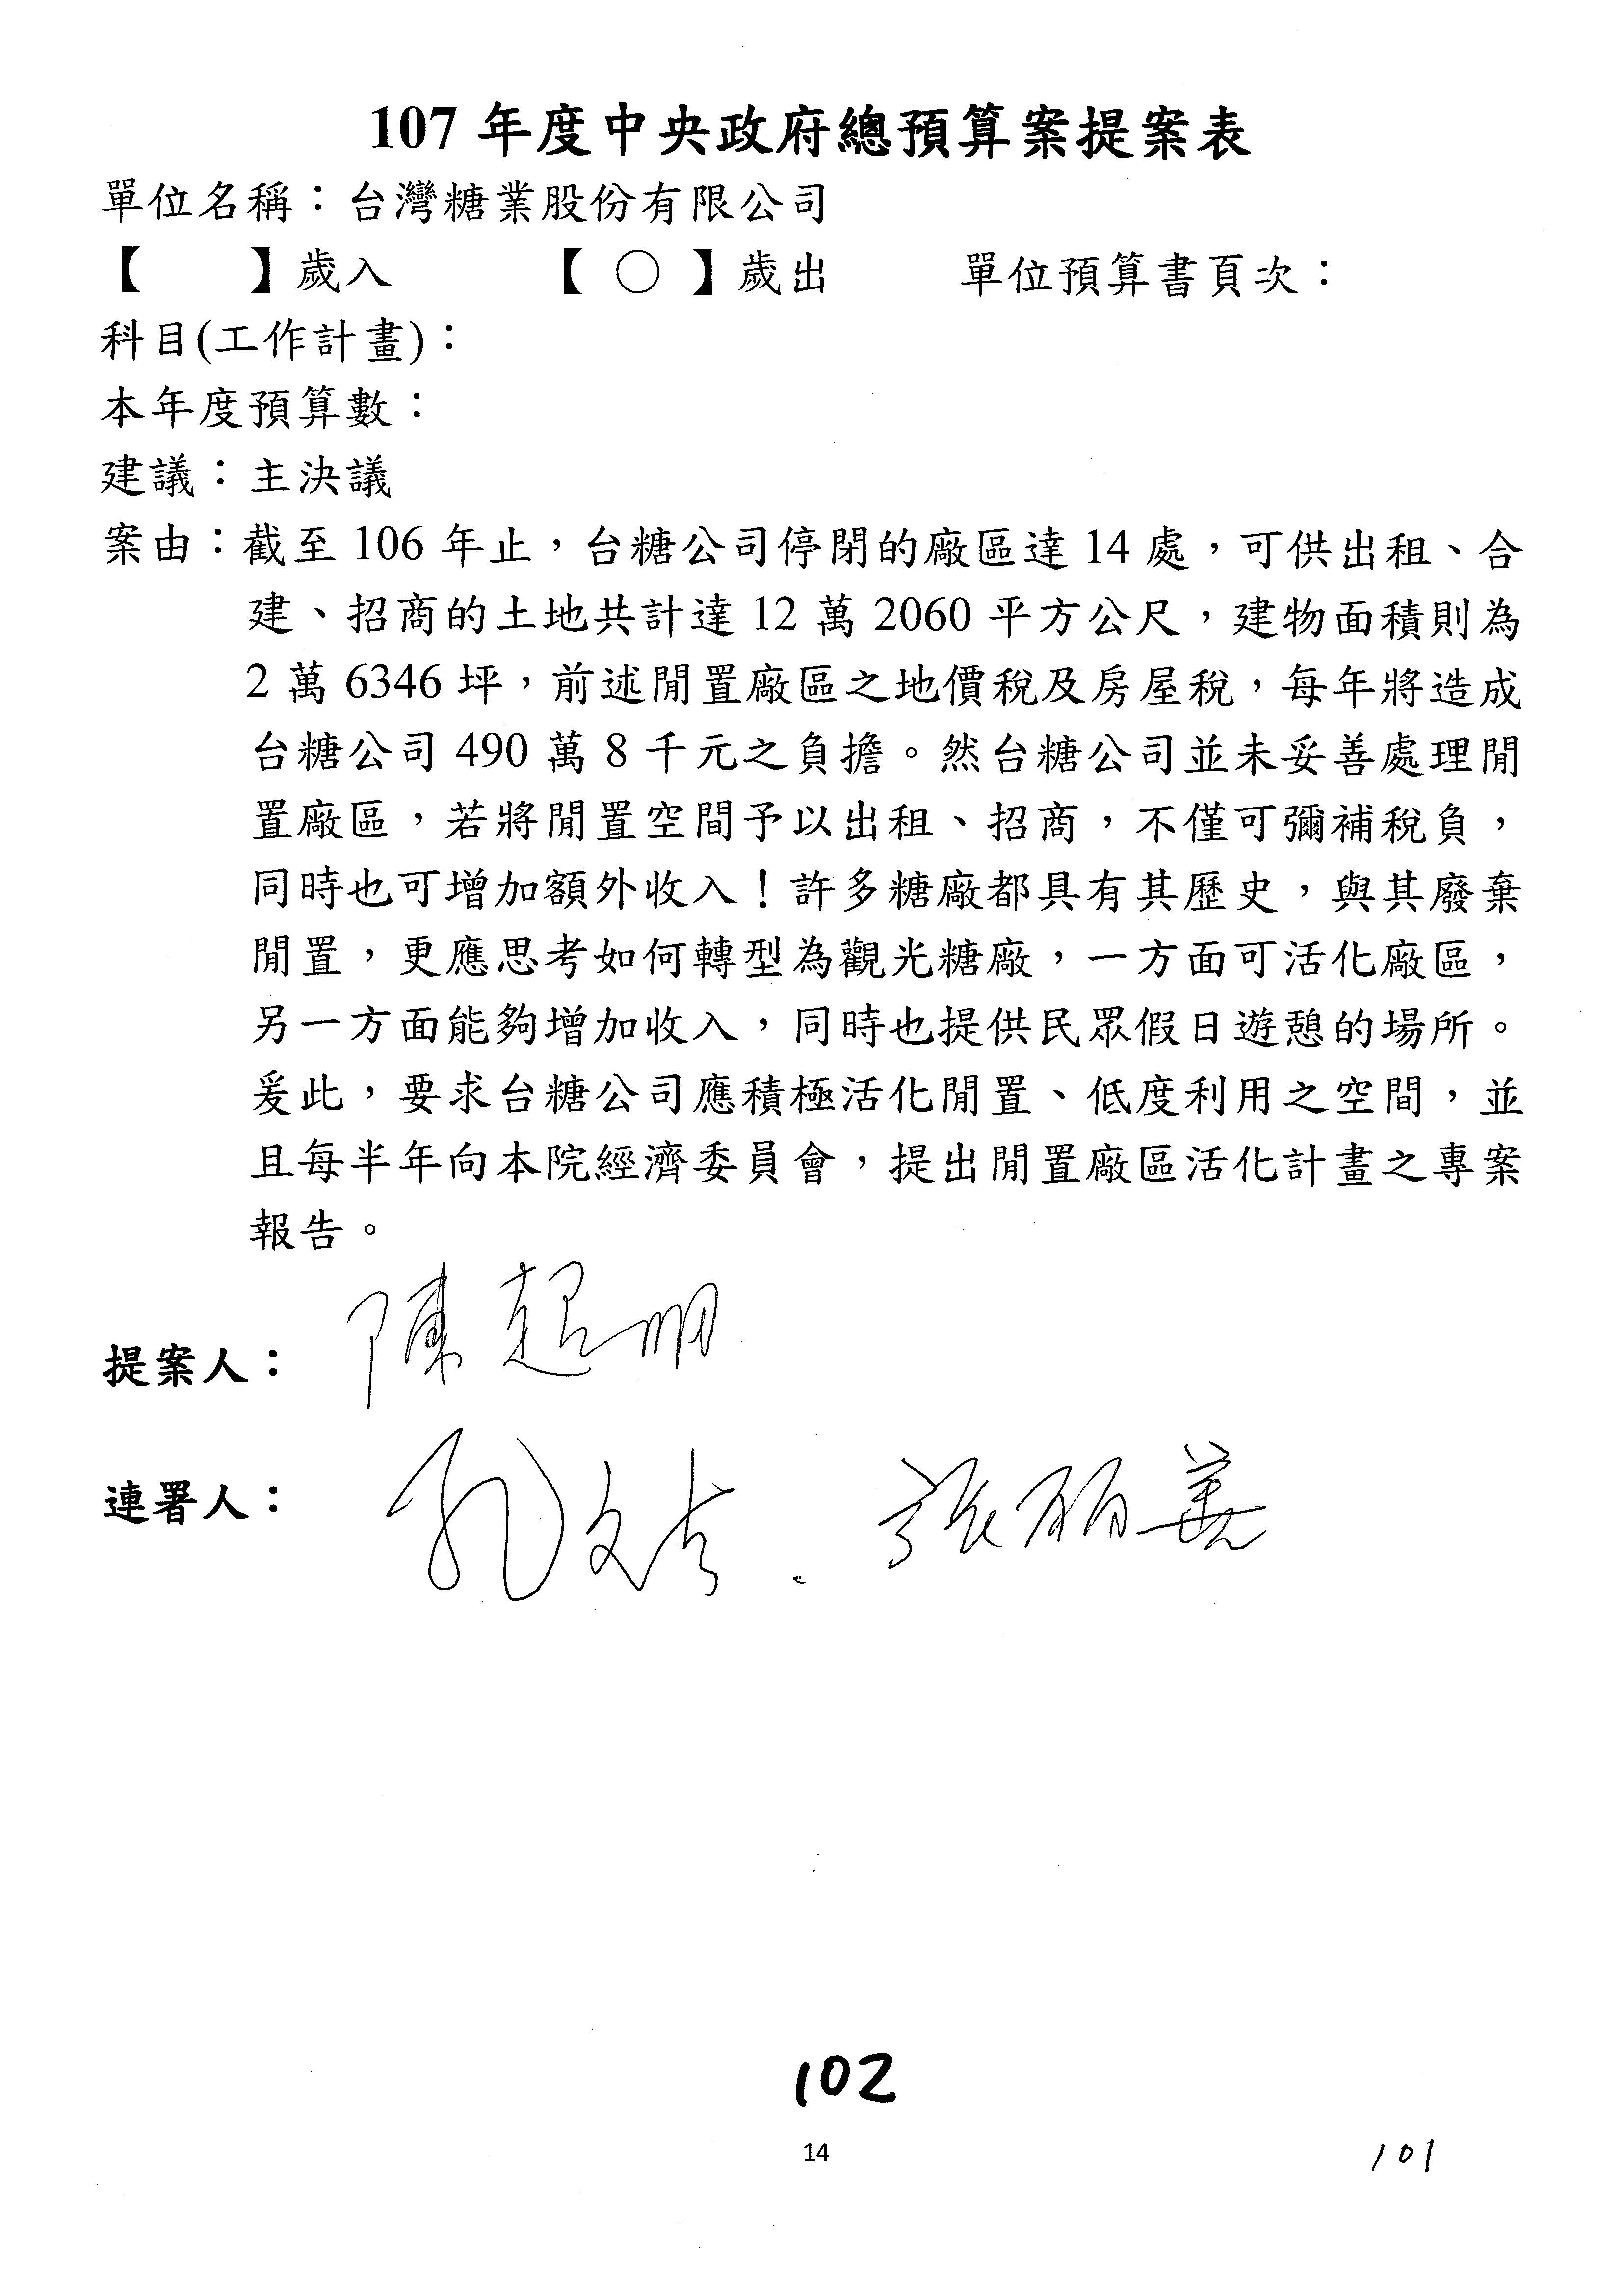 107 年度中央政府總預算案提案表
單位名稱：台灣糖業股份有限公司
【　　】歲入　　【 ○ 】歲出　　單位預算書頁次：
科目(工作計畫)：
本年度預算數：
建議：主決議
案由：截至 106 年止，台糖公司停閉的廠區達 14 處，可供出租、合
建、招商的土地共計達 12 萬 2060 平方公尺，建物面積則為
2 萬 6346 坪，前述閒置廠區之地價稅及房屋稅，每年將造成
台糖公司 490 萬 8 千元之負擔。然台糖公司並未妥善處理閒
置廠區，若將閒置空間予以出租、招商，不僅可彌補稅負，
同時也可增加額外收入！許多糖廠都具有其歷史，與其廢棄
閒置，更應思考如何轉型為觀光糖廠，一方面可活化廠區，
另一方面能夠增加收入，同時也提供民眾假日遊憩的場所。
爰此，要求台糖公司應積極活化閒置、低度利用之空間，並
且每半年向本院經濟委員會，提出閒置廠區活化計畫之專案
報告。
提案人：陳超明
連署人：孔文吉　張麗善
102
14
101